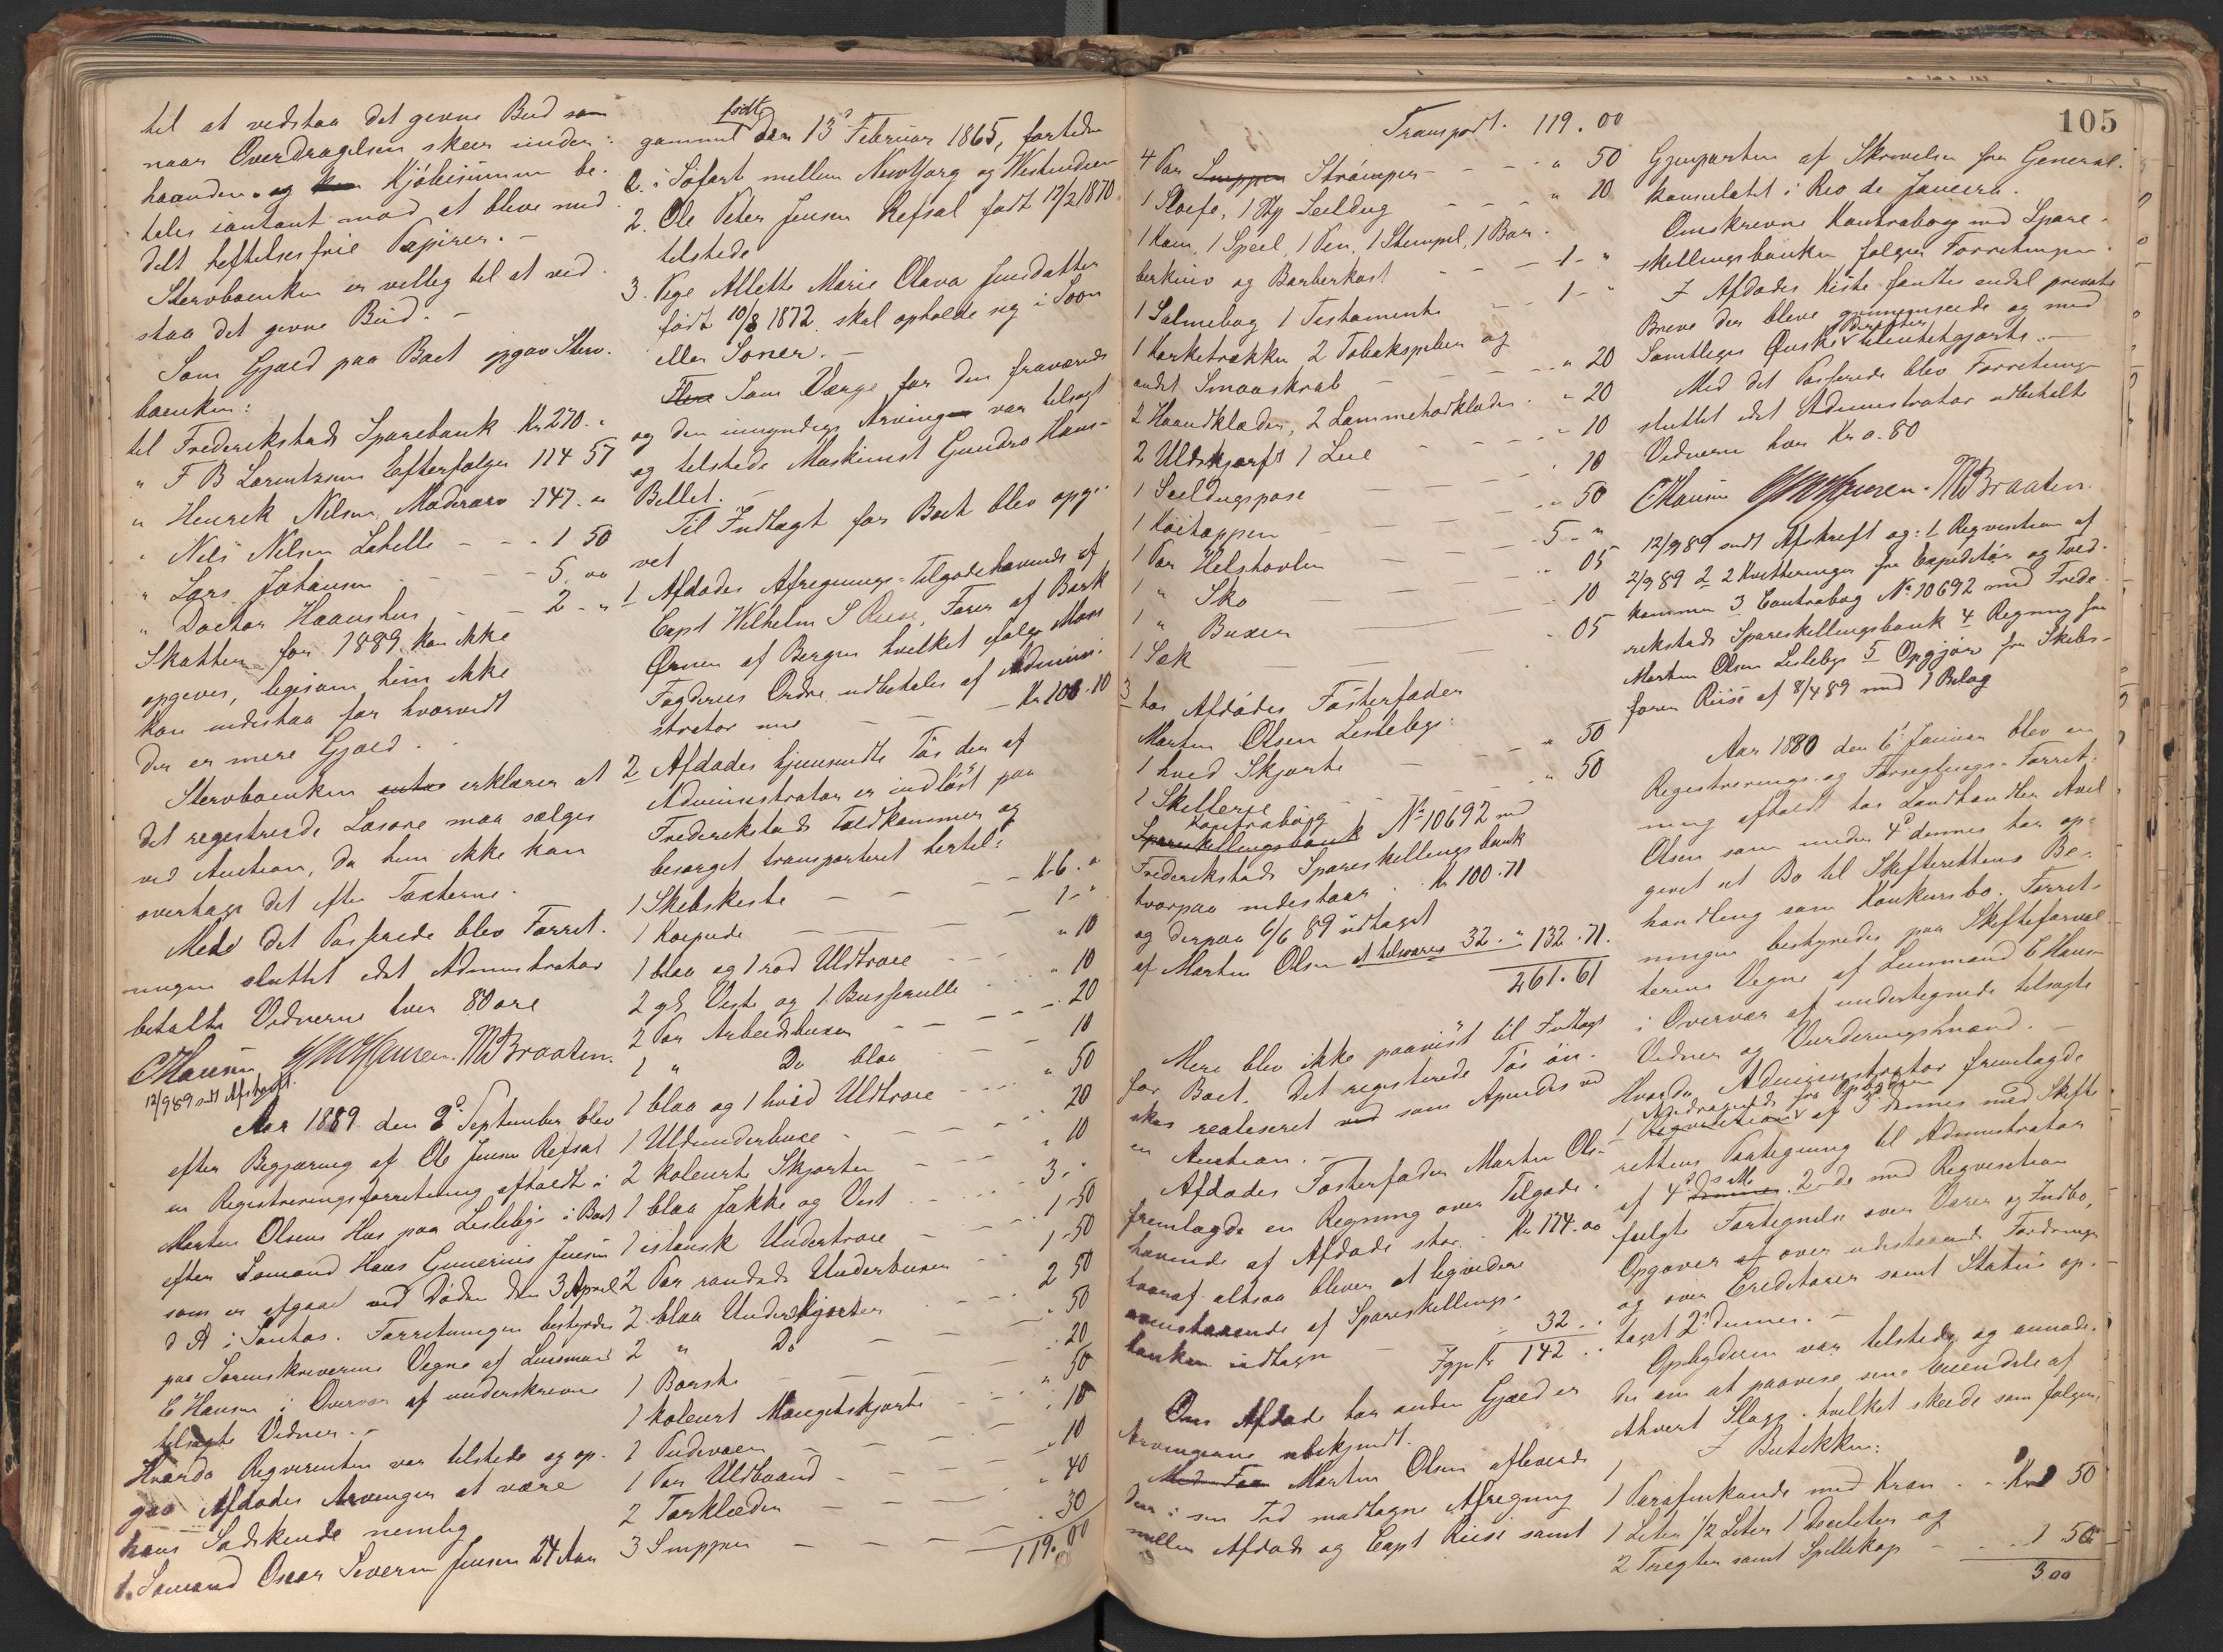 til at vedstaa det givne Bud som
naar Overdragelsen skeer under-
haanden og Kjöbesummen be-
tales contant mod at blive med-
delt heftelsesfrie Papirer. -
Stervboenken er villig til at ved-
staa det givne Bud. -
Som Gjæld paa Boet opgav Sterv-
boenken:
til Frederikstads Sparebank Kr 270. "
" F B Lorentzens Efterfølger 114 57
" Henrik Nilsen Moderarv 147. "
" Nils Nilsen Labelle - - - 1 50
" Lars Johansen - - - 5. 00
" Doctor Haanshus - - - 2 - "
Skatten for 1889 kan ikke
opgives, ligesom hun ikke
kan indestaa for hvorvidt
der er mere Gjæld.
Stervboenken erklærer at
det registrerede Løsøre maa sælges
ved Auction, da hun ikke kan
overtage det efter Taxterne.
Med det Passerede blev Forret-
ningen sluttet idet Administrator
betalte Vidnerne hver 80 øre
C Hansen M Braaten.
12/9 89 sdt Afskrift.
Aar 1889 den 2d September blev
efter Begjæring af Ole Jensen Refsal
en Registreringsforretning afholdt i
Martin Olsens Hus paa Lisleby i Boet
efter Sömand Hans Gunerius Jensen
som er afgaaet ved Döden den 3 April
d A i Santos. Forretningen bestyredes
paa Sorenskriverens Vegne af Lensmand
C Hansen i Overvær af underskrevne
tilsagte Vidner. -
Hvorda Reqvirenten var tilstede og op-
gav Afdödes Arvinger at være
hans Södskende nemlig
1. Sömand Oscar Severin Jensen 24 Aar
gammel födt den 13d Februar 1865, fortiden
i Söfart mellem NewYorg og Westindien
2. Ole Peter Jensen Refsal födt 12/2 1870
tilstede
3. Pige Allette Marie Olava Jensdatter
födt 10/8 1872. skal opholde sig i Soon
eller Soner. -
Som Værge for den fraværende
og den umyndige Arving var tilsagt
og tilstede Maskinist Gundro Hans-
Billet. -
Til Indtægt for Boet blev opgi-
vet
1 Afdödes Afregnings-Tilgodehavende af
Capt Wilhelm S Riise, Förer af Bark
Ørnen af Bergen hvilket ifølge
Fogderiets Ordre udbetales af Admini-
strator med - - - Kr 100. 10
2 Afdödes hjemsendte Töi der af
Administrator er indlöst paa
Frederikstads Toldkammer og
besörget transporteret hertil:
1 Skibskiste - - - Kr 6. "
1 Koipude - - - 1 - "
1 blaa og 1 röd Uldtröie - - - " 10
2 gl Veste og 1 Busserulle - - " 10
2 Par Arbeidsbuxer - - - " 20
1 " Do blaa - - - " 10
1 blaa og 1 hvid Uldtröie - - - " 50
1 Uldunderbuxe - - - " 20
2 koleurt Skjorter - - - " 10
1 blaa Jakke og Vest - - - 3 - "
1 islansk Undertröie - - 1 - 50
2 Par randede Underbuxer - - 1 - 50
2 blaa Underskjorter - - 2 50
2 " Do - - - " 50
1 Börste - - - " 20
1 koleurt Mangetskjorte - - - " 50
1 Pudevaer - - - " 10
1 Par Uldbaand - - - " 10
2 Törklæder - - - " 40
3 Snipper - - - " 30
119. 00
105
Transport. 119. 00
4 Par Snippen Strömper - - - " 50
1 Sloife, 1 Stk Seildug - - - " 10
1 Kam, 1 Speil, 1 Pen, 1 Stempel, 1 Bar-
berkniv og Barberkost - - - 1 - "
1 Salmebog 1 Testamente - - - 1 - "
1 Korketrækker 2 Tobakspiber og
andet Smaaskrab - - - " 20
2 Haandklæder, 2 Lommetörklæder - " 20
2 Uldskjærf 1 Lue - - - " 10
1 Seildugspose - - - " 10
1 Köiteppen - - - " 50
1 Par Helstövler - - - 5 - "
1 " Sko - - - " 05
1 " Buxer - - - " 10
1 Sæk - - - " 05
3 hos Afdödes Fosterfader
Martin Olsen Lisleby:
1 hvid Skjorte - - - " 50
1 Skillerie - - - " 50
Spareskillingsbank Kontrabog No 10692 med
Frederikstads Spareskillingsbank
hvorpaa indestaar. Kr 100. 71
og derpaa 6/6 89 udtaget
af Martin Olsen at tilsvare 32. " 132. 71.
261. 61
Mere blev ikke paavist til Indtægt
for Boet. Det registrerede Töi ön-
skes realiseret ved som Apendix ved
en Auction. -
Afdödes Fosterfader Martin Ols-
fremlagde en Regning over Tilgode-
havende af Afdöde stor - Kr 174. 00
hvoraf altsaa bliver at liqvidere
ovenstaaende af Spareskillings-
banken udtagne - 32. "
Igjen Kr 142. "
Om Afdöde har anden Gjæld er
Arvingerne ubekjendt.
Med Foa Martin Olsen afleverede
den i sin Tid modtagne Afregning
mellem Afdöde og Capt Riise samt
Gjenparten af Skrivelse fra General-
konsulatet i Rio de Janeiro.
Omskrevne Kontrabog med Spare-
skillingsbanken følger Forretningen.
I Afdödes Kiste fandtes endel private
Breve der bleve gjennemseede og med
Samtliges Önske derefter tilintetgjorte. -
Med det Passerede blev Forretningen
sluttet idet Administrator udbetalte
Vidnerne hver Kr 0. 80
C Hansen M Braaten.
12/9 89 sendt Afskrift og: 1 Reqvisition af
2/9 89 2 2 Kvitteringer fra Expeditör og Told-
kammer 3 Contrabog No 10692 med Frede-
rikstads Spareskillingsbank 4 Regning fra
Martin Olsen Lisleby 5 Opgjör fra Skibs-
förer Riise af 8/4 89 med 1 Bilag
Aar 1880 den 6' Januar blev en
Registrerings- og Forseglings-Forret-
ning afholdt hos Landhandler Axel
Olsen som under 4d dennes har op-
givet sit Bo til Skifterettens Be-
handling som Konkursbo. Forret-
ningen bestyredes paa Skifteforval-
terens Vegne af Lensmand C Hansen
i Overvær af undertegnede tilsagte
Vidner og Vurderingsmænd. -
Hvorda Administrator fremlagde
1 Andragende fra Opbyderen af 3 dennes med Skift-
rettens Paategning til Administrator
af 4d s M. 2 de med Reqvisition
fulgte Fortegnelse over Varer og Indbo,
Opgaver af over udestaaende Fordringer
og over Creditorer samt Status op-
taget 2' dennes. -
Opbyderen var tilstede og anmode-
des om at paavise sine Eiendele af
ethvert Slags. hvilket skeede som følger:
I Butikken:
1 Parafinkande med Kran - - Kr 1 50
1 Liter 1/2 Liter 1 Deciliter og
2 Tregter samt Spillekop - - - 1 50
3 00